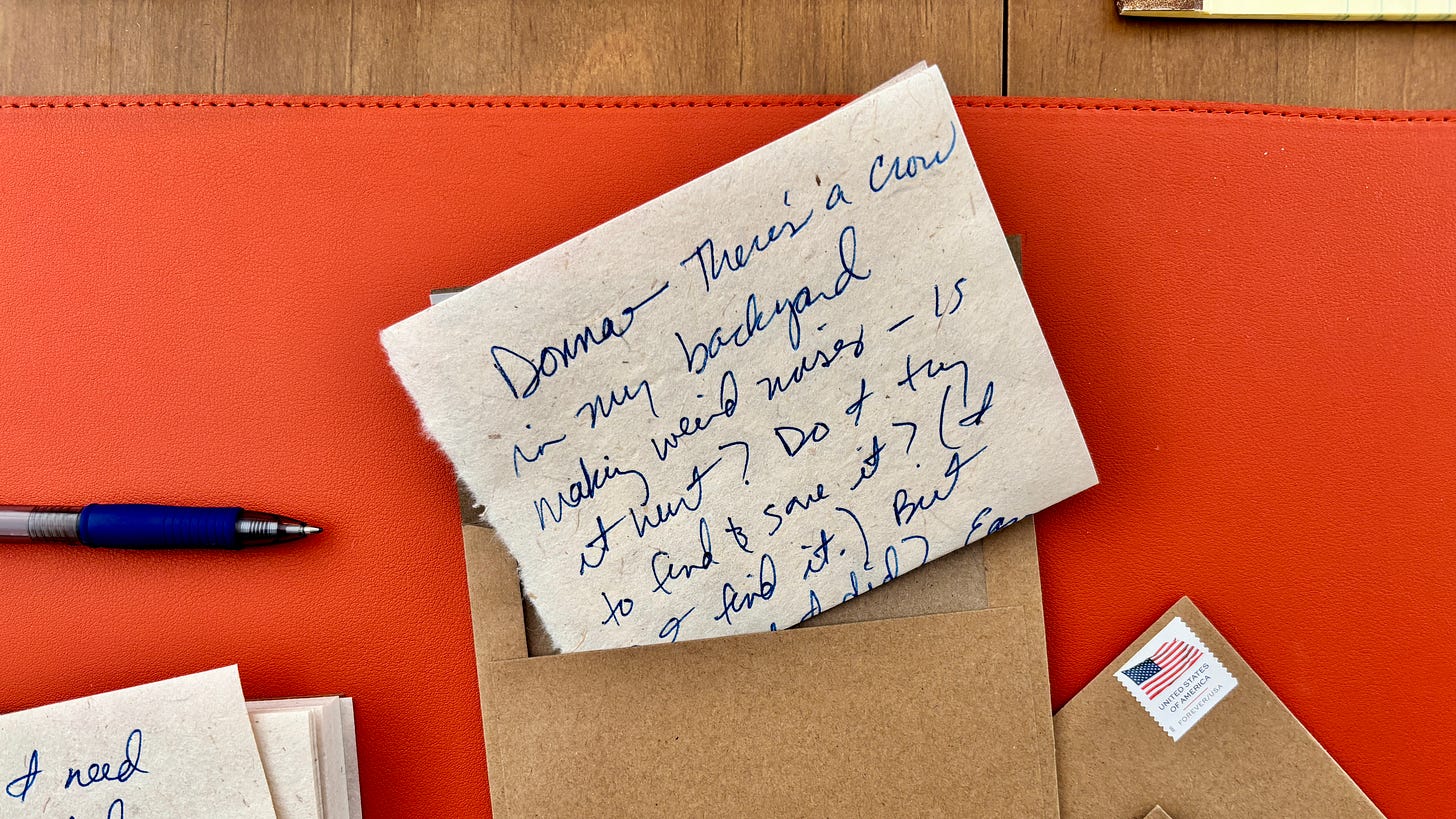 Donna – There's a crow
in my backyard
making weird noises – is
it hurt? Do I try
to find & save it? (I
find it.) But
I did?
I need
UNITED STATES
OF AMERICA
FOREVER/USA